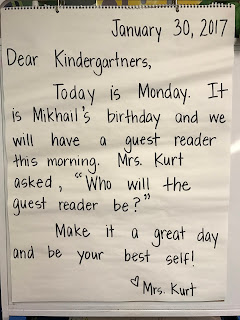 January 30, 2017
Dear Kindergartners,
Today is Monday. It
is Mikhail's birthday and we
will have a guest reader
this morning. Mrs. Kurt
asked, "Who will the
guest reader be?"
Make it a great day
and be your best self!
♡ Mrs. Kurt